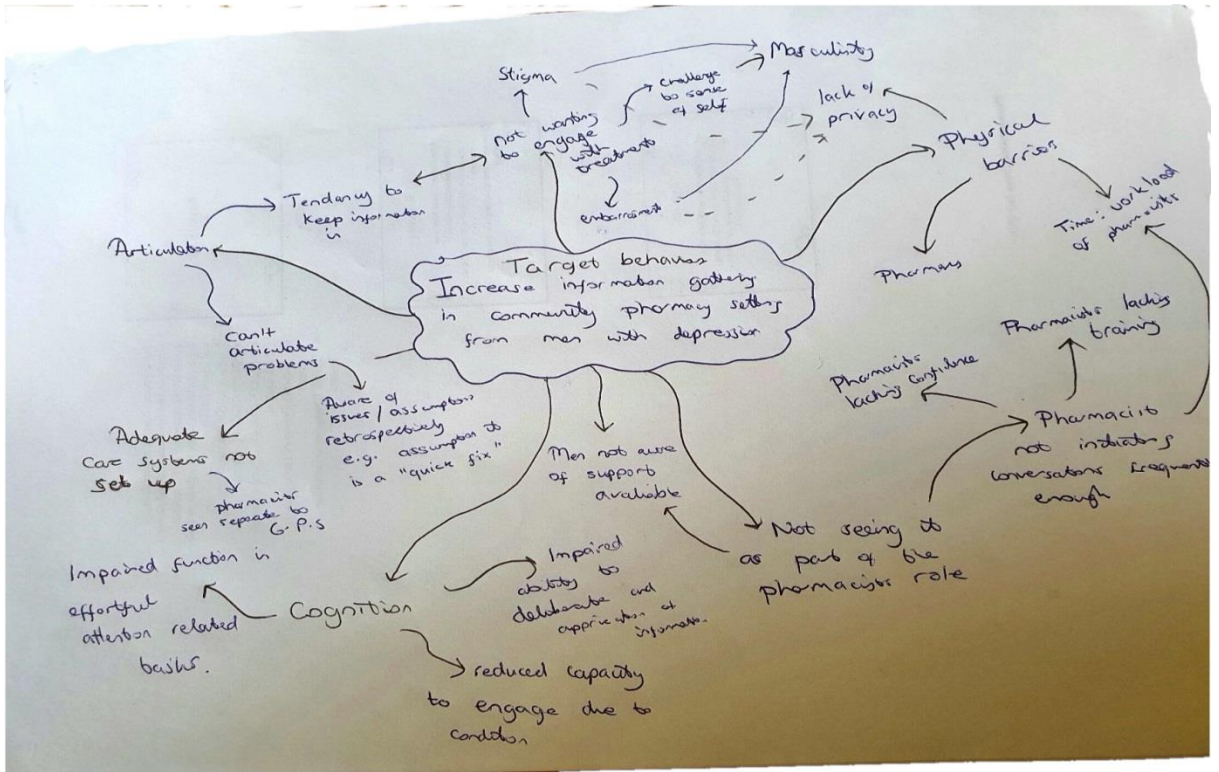 Target behavior
Increase information gathering
in community pharmacy setting
from men with depression
Stigma
Masculinity
challenge
to sense
of self
not wanting
to engage
with
treatment
embarrassment
lack of
privacy
Physical
barrier
Time: workload
of pharmacists
Tendancy to
keep information
in
Articulation
can't
articulate
problems
Aware of
issues / assumptions
retrospectively
e.g. assumption it
is a "quick fix"
Adequate
care systems not
set up
pharmacist
seen seperate to
G.P.s
Men not aware
of support
available
Not seeing it
as part of the
pharmacists role
Pharmacist
not initiating
conversations frequently
enough
Pharmacists lacking
training
Pharmacists
lacking confidence
Cognition
Impaired function in
effortful
attention related
tasks.
Impaired
ability to
deliberate and
of
reduced capacity
to engage due to
condition